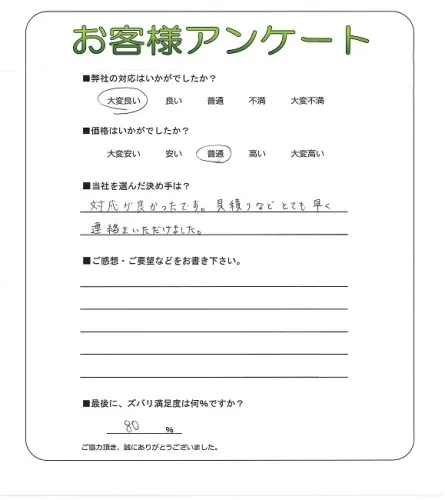 お客様アンケート
■弊社の対応はいかがでしたか?
大変良い 良い 普通 不満 大変不満
■価格はいかがでしたか?
大変安い 安い 普通 高い 大変高い
■当社を選んだ決め手は?
対応が良かったです。見積りなどとても早く
連絡をいただけました。
■ご感想・ご要望などをお書き下さい。
■最後に、ズバリ満足度は何%ですか?
80 %
ご協力頂き、誠にありがとうございました。